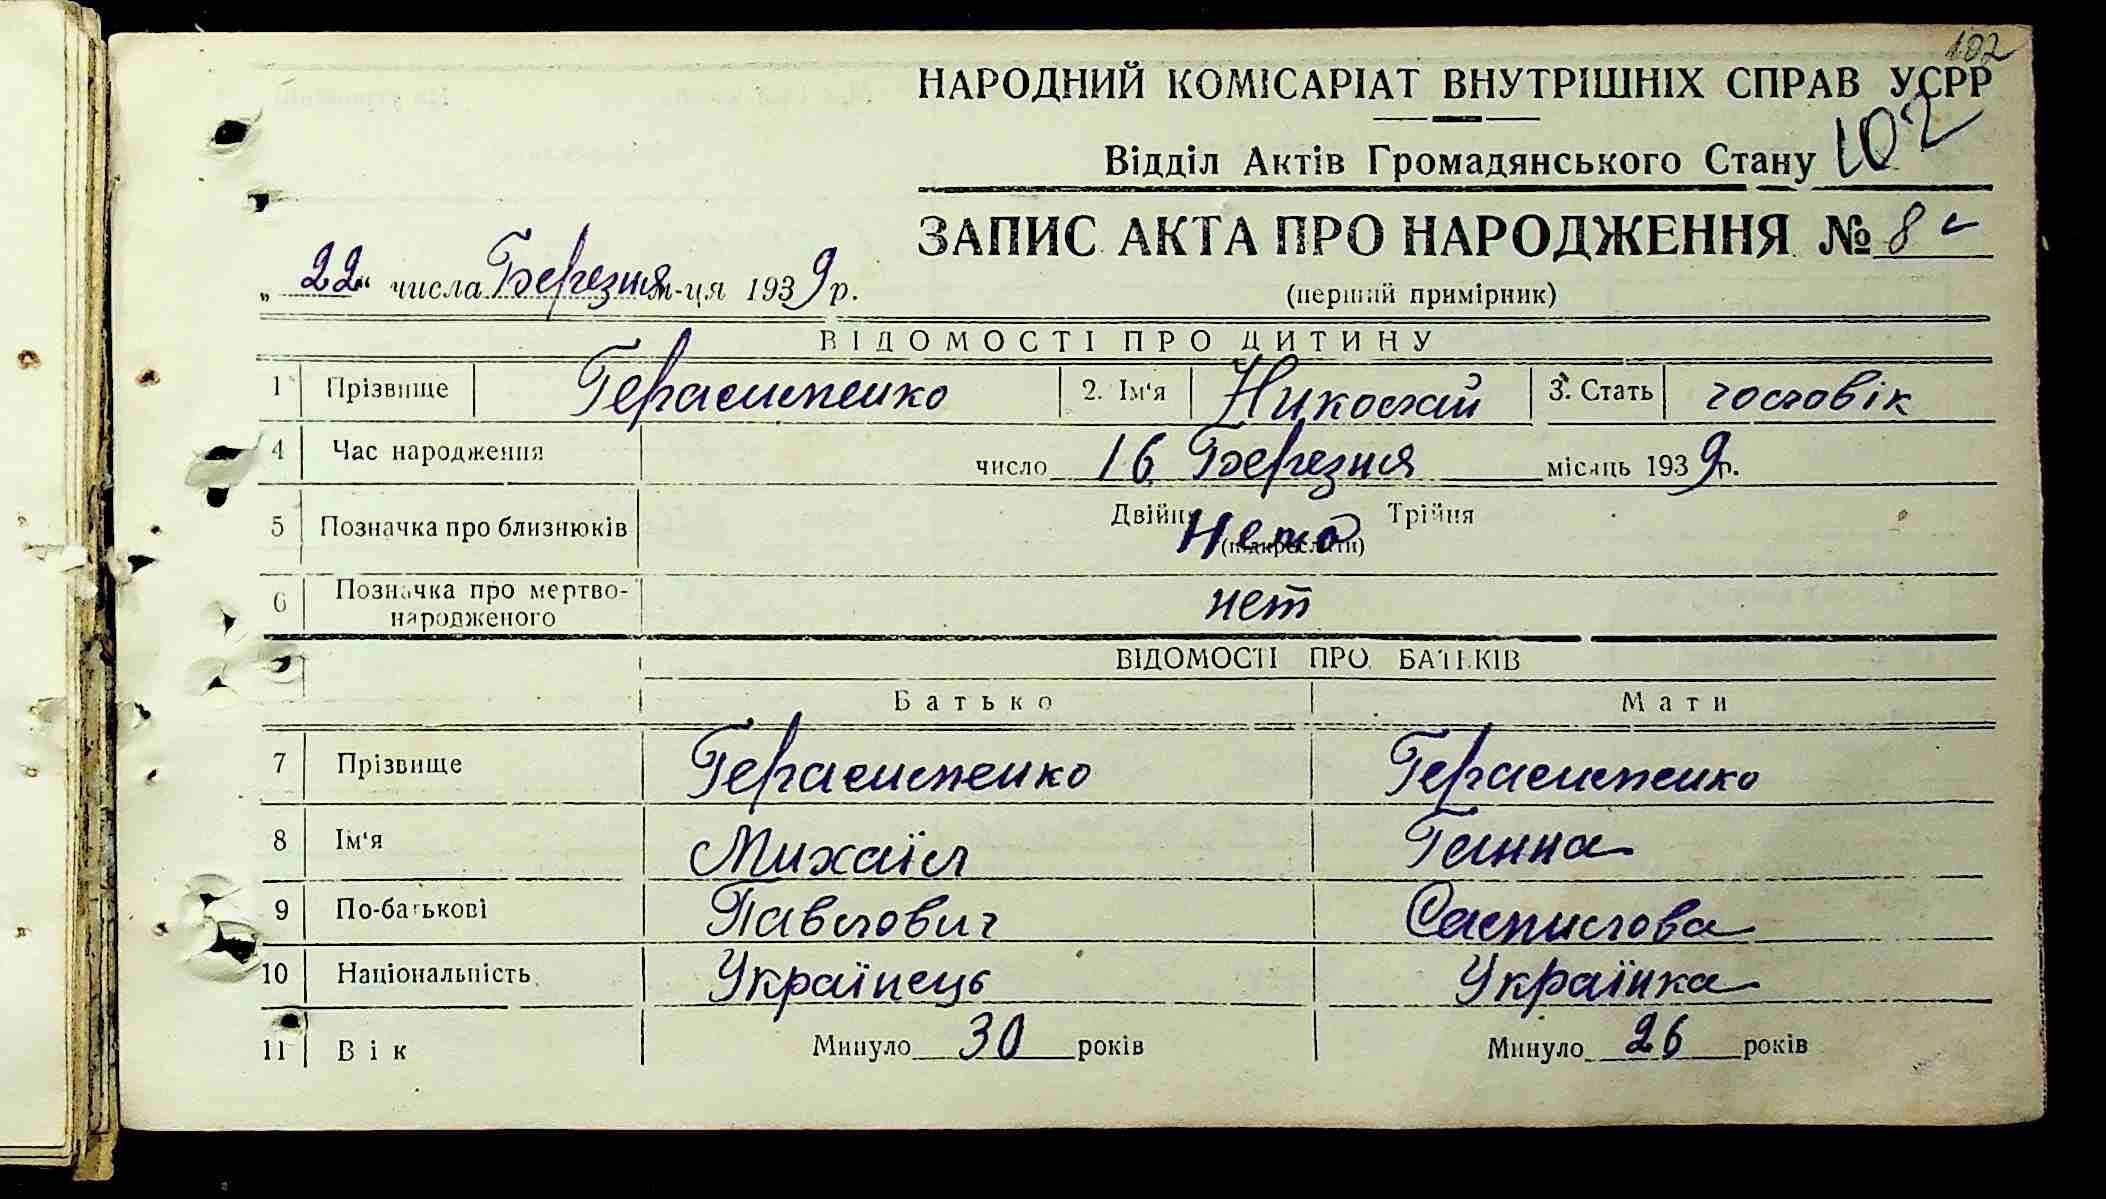 102
НАРОДНИЙ КОМІСАРІАТ ВНУТРІШНІХ СПРАВ УСРР
Відділ Актів Громадянського Стану 102
ЗАПИС АКТА ПРО НАРОДЖЕННЯ № 8
„22“ числа Березня м-ця 1939 р.
(перший примірник)
ВІДОМОСТІ ПРО ДИТИНУ
1 Прізвище Герасименко 2. Ім'я Николай 3. Стать чоловік
4 Час народження число 16 Березня місяць 1939 р.
5 Позначка про близнюків Двійня Нема Трійня
(підкреслити)
6 Позначка про мертво-
народженого нет
ВІДОМОСТІ ПРО БАТЬКІВ
Батько Мати
7 Прізвище Герасименко Герасименко
8 Ім'я Михаїл Ганна
9 По-батькові Павлович
10 Національність Українець Українка
11 Вік Минуло 30 років Минуло 26 років